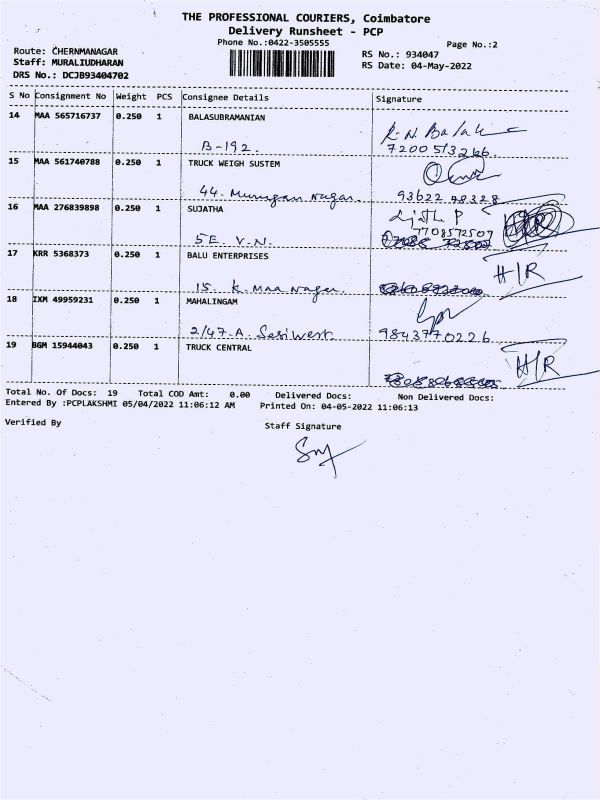 THE PROFESSIONAL COURIERS, Coimbatore
Delivery Runsheet - PCP
Phone No.:0422-3505555
Page No.:2
Route: CHERNMANAGAR
RS No.: 934047
Staff: MURALIUDHARAN
RS Date: 04-May-2022
DRS No.: DCJB93404702
S No Consignment No Weight PCS Consignee Details Signature
14 MAA 565716737 0.250 1 BALASUBRAMANIAN
R.N. Balak
B-192. 7200513266
15 MAA 561740788 0.250 1 TRUCK WEIGH SUSTEM
44. Murugan Nagar. 93622 98328
16 MAA 276839898 0.250 1 SUJATHA
7708572509
5E. V.N.
17 KRR 5368373 0.250 1 BALU ENTERPRISES
H/R
15. K. Maa Nagar.
18 IXM 49959231 0.250 1 MAHALINGAM
2/47.A. Sesiwest. 9843770226
19 BGM 15944043 0.250 1 TRUCK CENTRAL
H/R
Total No. Of Docs: 19 Total COD Amt: 0.00 Delivered Docs: Non Delivered Docs:
Entered By :PCPLAKSHMI 05/04/2022 11:06:12 AM Printed On: 04-05-2022 11:06:13
Verified By Staff Signature